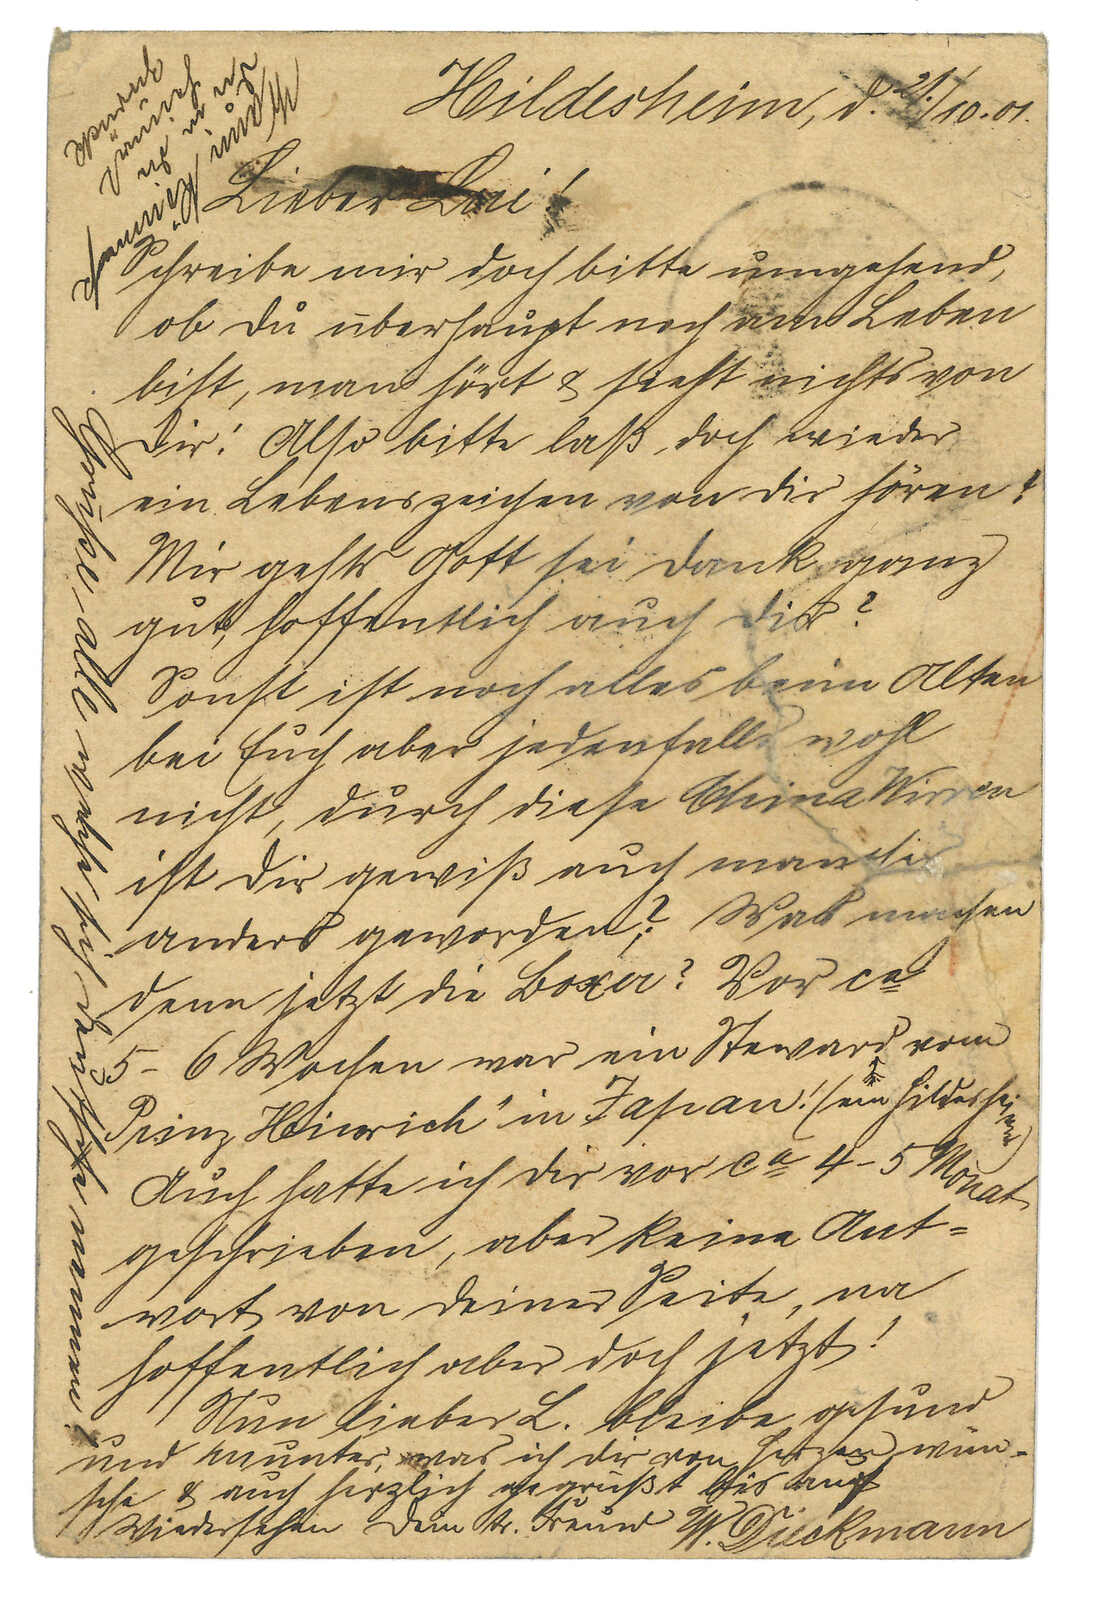 Hildesheim, d. 21./10.01.
Lieber Lui!
Schreibe mir doch bitte umgehend,
ob Du überhaupt noch am Leben
bist, man hört & sieht nichts von
Dir! Also bitte laß doch wieder
ein Lebenszeichen von Dir hören!
Mir gehts Gott sei Dank ganz
gut, hoffentlich auch Dir?
Sonst ist noch alles beim Alten
bei Euch aber jedenfalls wohl
nicht, durch diese China Wirren
ist Dir gewiß auch manches
anders geworden? Was machen
denn jetzt die Boxer? Vor ca
5-6 Wochen war ein Steward vom
Prinz Heinrich" in Japan! (ein Hildesheimer)
Auch hatte ich Dir vor ca 4-5 Monat
geschrieben, aber keine Ant=
wort von Deiner Seite, na
hoffentlich aber doch jetzt!
Nun lieber L. bleibe gesund
und munter, was ich Dir von Herzen wün-
sche & auch herzlich gegrüßt bis auf
Wiedersehen Dein tr. Freund W. Dieckmann
alle
zurück